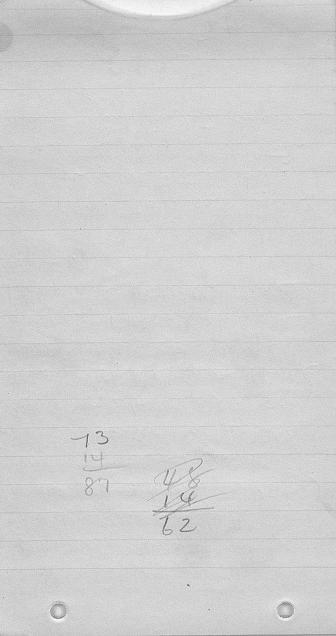 73
14
87
48
14
62